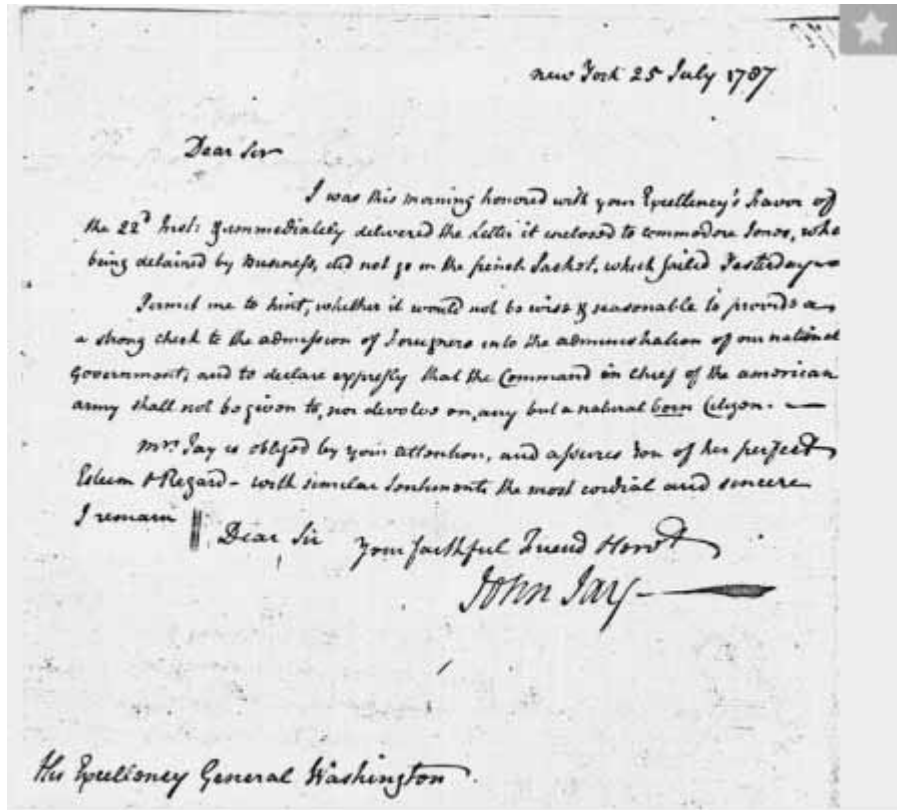 new York 25 July 1787
Dear Sir
I was this morning honored with your Excellency's Favor of
the 22d Inst: & immediately delivered the Letter it enclosed to commodore Jones, who
being detained by Business, did not go in the french Packet, which sailed Yesterday
Permit me to hint, whether it would not be wise & seasonable to provide a
a strong check to the admission of Foreigners into the administration of our national
Government; and to declare expressly that the Command in chief of the american
army shall not be given to, nor devolve on, any but a natural born Citizen. —
Mrs Jay is obliged by your attention, and assures You of her perfect
Esteem & Regard – with similar Sentiments the most cordial and sincere
I remain Dear Sir Your faithful Friend & Servt
John Jay
His Excellency General Washington.